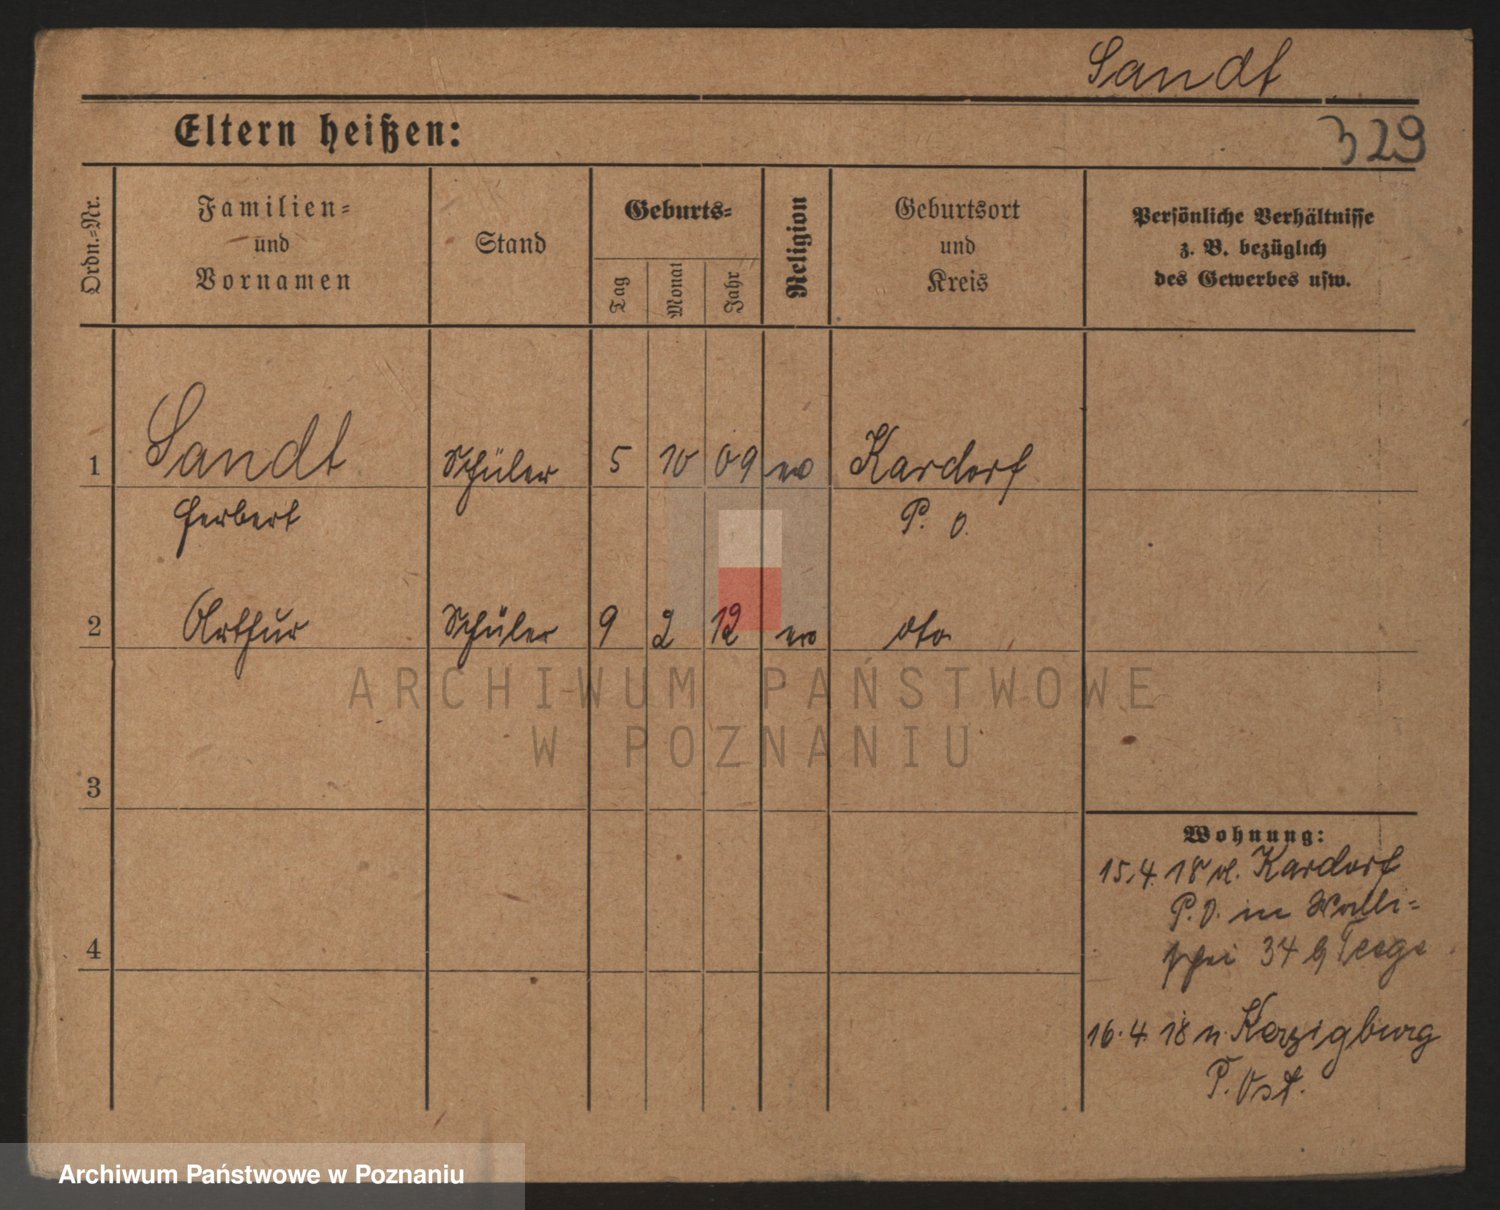 Sandt
Eltern heißen:
329
Ordn.=Nr.
Familien=
und
Vornamen
Stand
Geburts=
Tag
Monat
Jahr
Religion
Geburtsort
und
Kreis
Persönliche Verhältnisse
z. B. bezüglich
des Gewerbes usw.
1 Sandt Schüler 5 10 09 ev Kardorf
Herbert P. O.
2 Arthur Schüler 9 2 12 ev dto
3
4
Wohnung:
15.4.18 v. Kardorf
P.O. in Walli=
schei 34 b Teege
16.4.18 n.
P. Ost.
ARCHIWUM PAŃSTWOWE
W POZNANIU
Archiwum Państwowe w Poznaniu